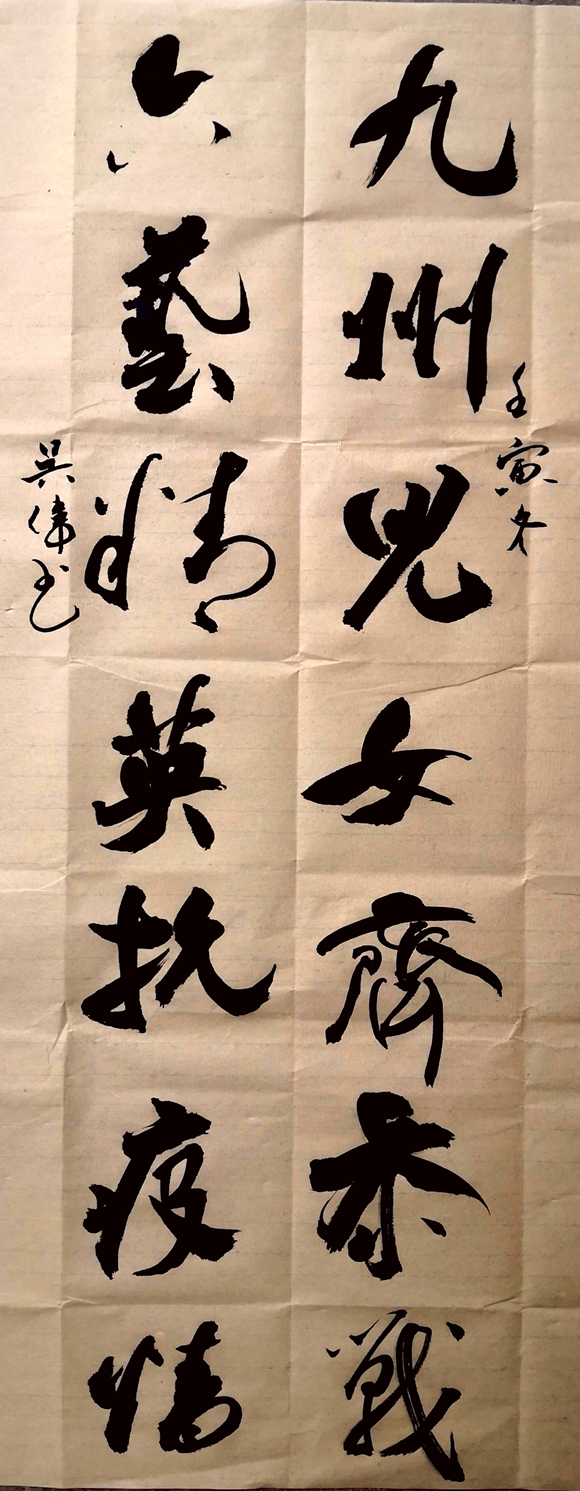 九州兒女齊恭戰
壬寅冬
六藝精英抗疫情
吴偉书